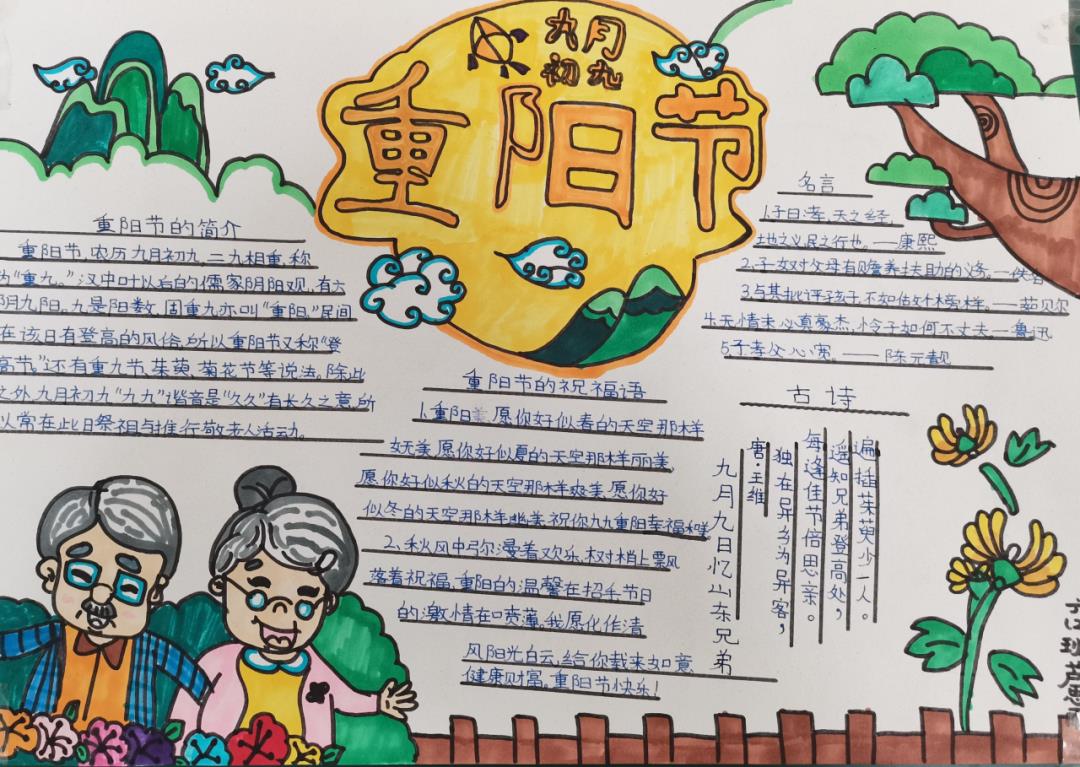 九月
初九
重阳节
重阳节的简介
重阳节,农历九月初九,二九相重,称
为“重九。”汉中叶以后的儒家阴阳观,有六
阴九阳。九是阳数,固重九亦叫“重阳。”民间
在该日有登高的风俗,所以重阳节又称“登
高节。”还有重九节、茱萸、菊花节等说法。除此
之外,九月初九“九九”谐音是“久久”有长久之意,所
以常在此日祭祖与推行敬老人活动。
重阳节的祝福语
1.重阳美,愿你好似春的天空那样
妩美,愿你好似夏的天空那样丽美,
愿你好似秋的天空那样爽美,愿你好
似冬的天空那样幽美,祝你九九重阳幸福和美
2、秋风中弥漫着欢乐,树梢上飘
落着祝福,重阳的温馨在招手节日
的激情在喷薄。我愿化作清
风阳光白云,给你载来如意
健康财富。重阳节快乐!
名言
1.子曰:孝,天之经,
地之义,民之行也。——康熙
2.子女对父母有赡养扶助的义务。—佚名
3.与其批评孩子,不如估个木旁样。——茹贝尔
4.无情未必真豪杰,怜子如何不丈夫—鲁迅
5.子孝父心宽。——陈元靓
古诗
九月九日忆山东兄弟
唐·王维
独在异乡为异客,
每逢佳节倍思亲。
遥知兄弟登高处,
遍插茱萸少一人。
六(2)班 芦思